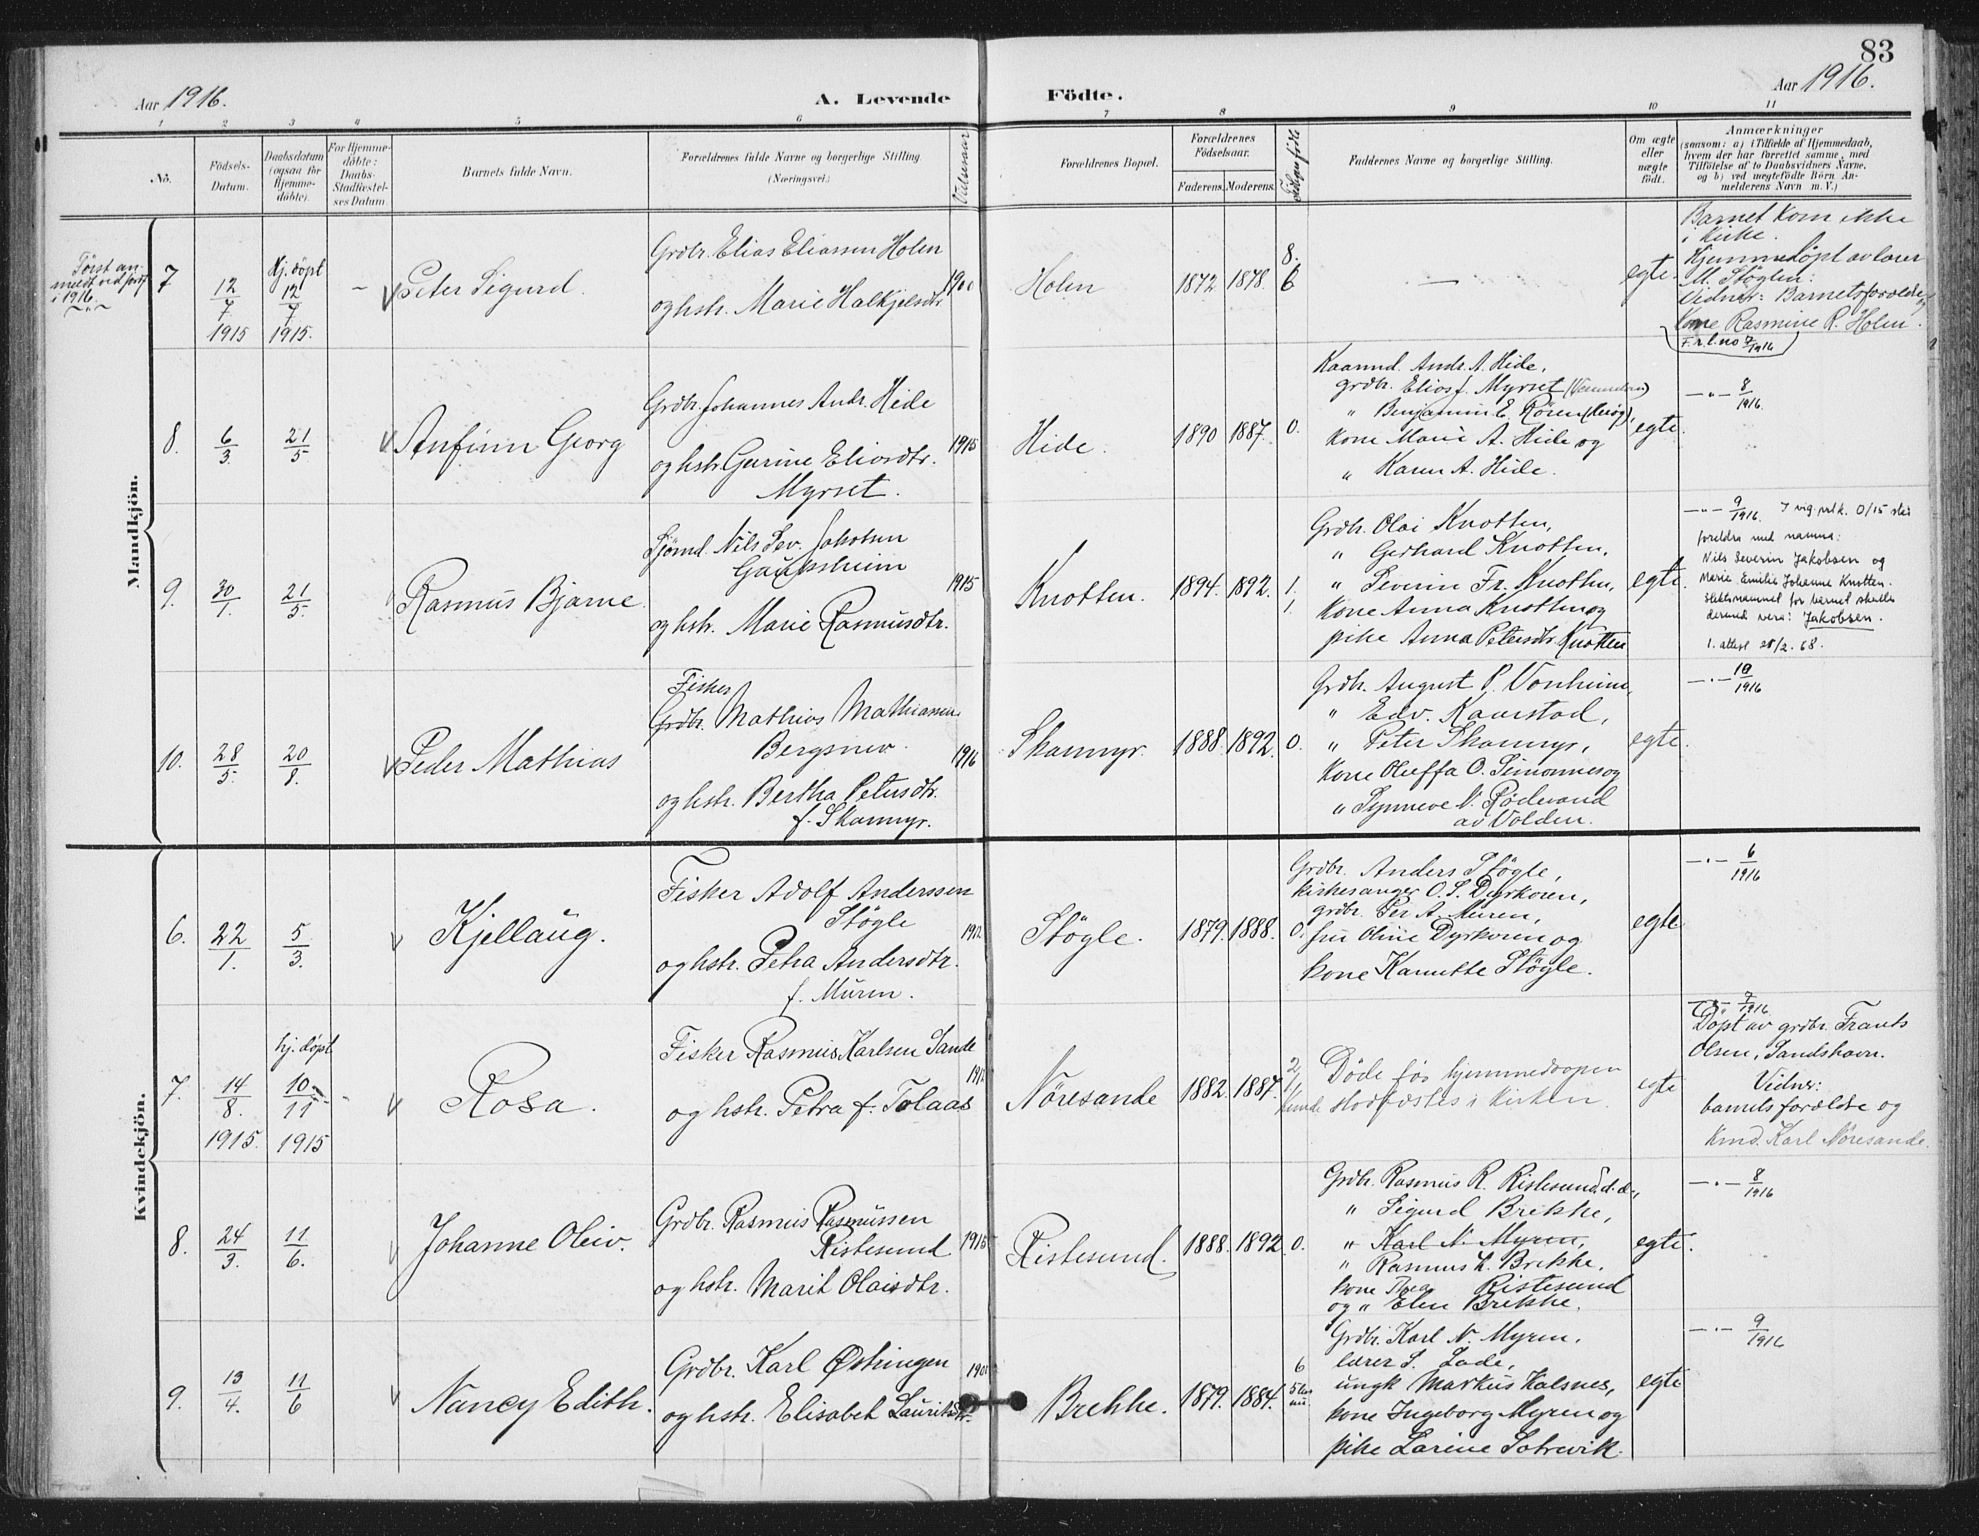 83
Aar 1916.
A. Levende
Födte.
Aar 1916.
1 2 3 4 5 6 7 8 9 10 11
No.
Födsels-
Datum.
Daabsdatum
(ogsaa for
Hjemme-
döbte).
For Hjemme-
döbte:
Daabs-
Stadfæstel-
ses Datum.
Barnets fulde Navn.
Forældrenes fulde Navne og borgerlige Stilling.
(Næringsvei.)
Vielsesaar
Forældrenes Bopæl.
Forældrenes
Födselsaar.
Faderens. Moderens.
Faddernes Navne og borgerlige Stilling.
Om ægte
eller
uægte
födt.
Anmærkninger
(saasom: a) i Tilfælde af Hjemmedaab,
hvem der har forrettet samme, med
Tilföielse af to Daabsvidners Navne,
og b) ved uægtefödte Börn An-
melderens Navn m. V.)
Mandkjön.
Först an-
meldt ved
i 1916.
7
12/7 1915
Hj. döpt
12/7 1915.
Peter Sigurd
Grdbr. Elias Eliassen Holen
og hstr. Marie Halkjelsdtr.
1900
Holen
1872 1878
8.
6
—
egte
Barnet kom ikke
i kirke.
Hjemmedöpt av lærer
M. Støylen.
Vidner: Barnets forældre og
Kone Rasmine R. Holen.
F.r.l. no 7/1916
8.
6/3
21/5
Anfinn Georg
Grdbr. Johannes Andr. Hide
og hstr. Gurine Eliasdtr.
Myrset.
1915
Hide.
1890 1887. 0.
Kaarmd. Andr. A. Hide,
grdbr. Elias J. Myrset
" Benjamin E. Røren
kone Marie A. Hide og
" Karen A. Hide.
egte.
—"— 8/1916.
9.
30/1
21/5
Rasmus Bjarne
Sjömd. Nils Sev. Jakobsen
Gaupsheim
og hstr. Marie Rasmusdtr.
1915
Knotten.
1894. 1892. 1.
1.
Grdbr. Olai Knotten,
" Gerhard Knotten,
" Severin Fr. Knotten,
kone Anna Knotten og
pike Anna Petersdtr. Knotten
egte.
—"— 9/1916. I vig.prtk. 0/15 står
foreldra med namna:
Nils Severin Jakobsen og
Marie Emilie Johanne Knotten.
Slektsnamnet for barnet skulle
dermed vera: Jakobsen.
1. attest 28/2. 68.
10.
28/5
20/8
Peder Mathias
Fisker
Grdbr. Mathias Mathiassen
Bergsnev
og hstr. Bertha Petersdtr.
f. Skarmyr.
1916
Skarmyr.
1888. 1892. 0.
Grdbr. August P. Vonheim,
" Edv. Kaarstad,
" Peter Skarmyr,
kone Oluffa O. Simonnes og
" Synneve N. Rödevand
av Volden.
egte.
—"— 10/1916
Kvindekjön.
6.
22/1.
5/3.
Kjellaug.
Fisker Adolf Anderssen
Støyle
og hstr. Petra Andersdtr.
f. Muren.
1912
Støyle.
1879. 1888. 0.
Grdbr. Anders Støyle,
kirkesanger O. S. Dyrkoren,
grdbr. Per A. Muren,
fru Oline Dyrkoren og
kone Karnette Støyle.
egte
—"— 6/1916
7.
14/8. 1915.
hj. döpt
10/11 1915
Rosa.
Fisker Rasmus Karlsen Sande
og hstr. Petra f. Tolaas
1912
Nöresande
1882. 1887.
Döde før hjemmedaapen
stadfæstes i kirken.
egte
—"— 7/1916
Döpt av grdbr. Frants
Olsen, Sandshavn.
Vidner:
barnets forældre og
kmd. Karl Nöresande.
8.
24/3.
11/6.
Johanne Oleiv.
Grdbr. Rasmus Rasmussen
Ristesund
og hstr. Marit Olaisdtr.
1915
Ristesund.
1888. 1892. 0.
Grdbr. Rasmus R. Ristesund d.æ.,
" Sigurd Brekke,
" Karl N. Myren,
" Rasmus L. Brekke,
kone Thea Ristesund
og " Elen Brekke.
egte.
—"— 8/1916
9.
13/4.
11/6
Nancy Edith.
Grdbr. Karl Østringen
og hstr. Elisabet Lauritsdtr.
Brekke.
1879. 1884.
6
Grdbr. Karl N. Myren,
lærer S. Lade,
ungk Markus Kalsnes,
kone Ingeborg Myren og
pike Larine Sotrevik.
egte
—"— 9/1916